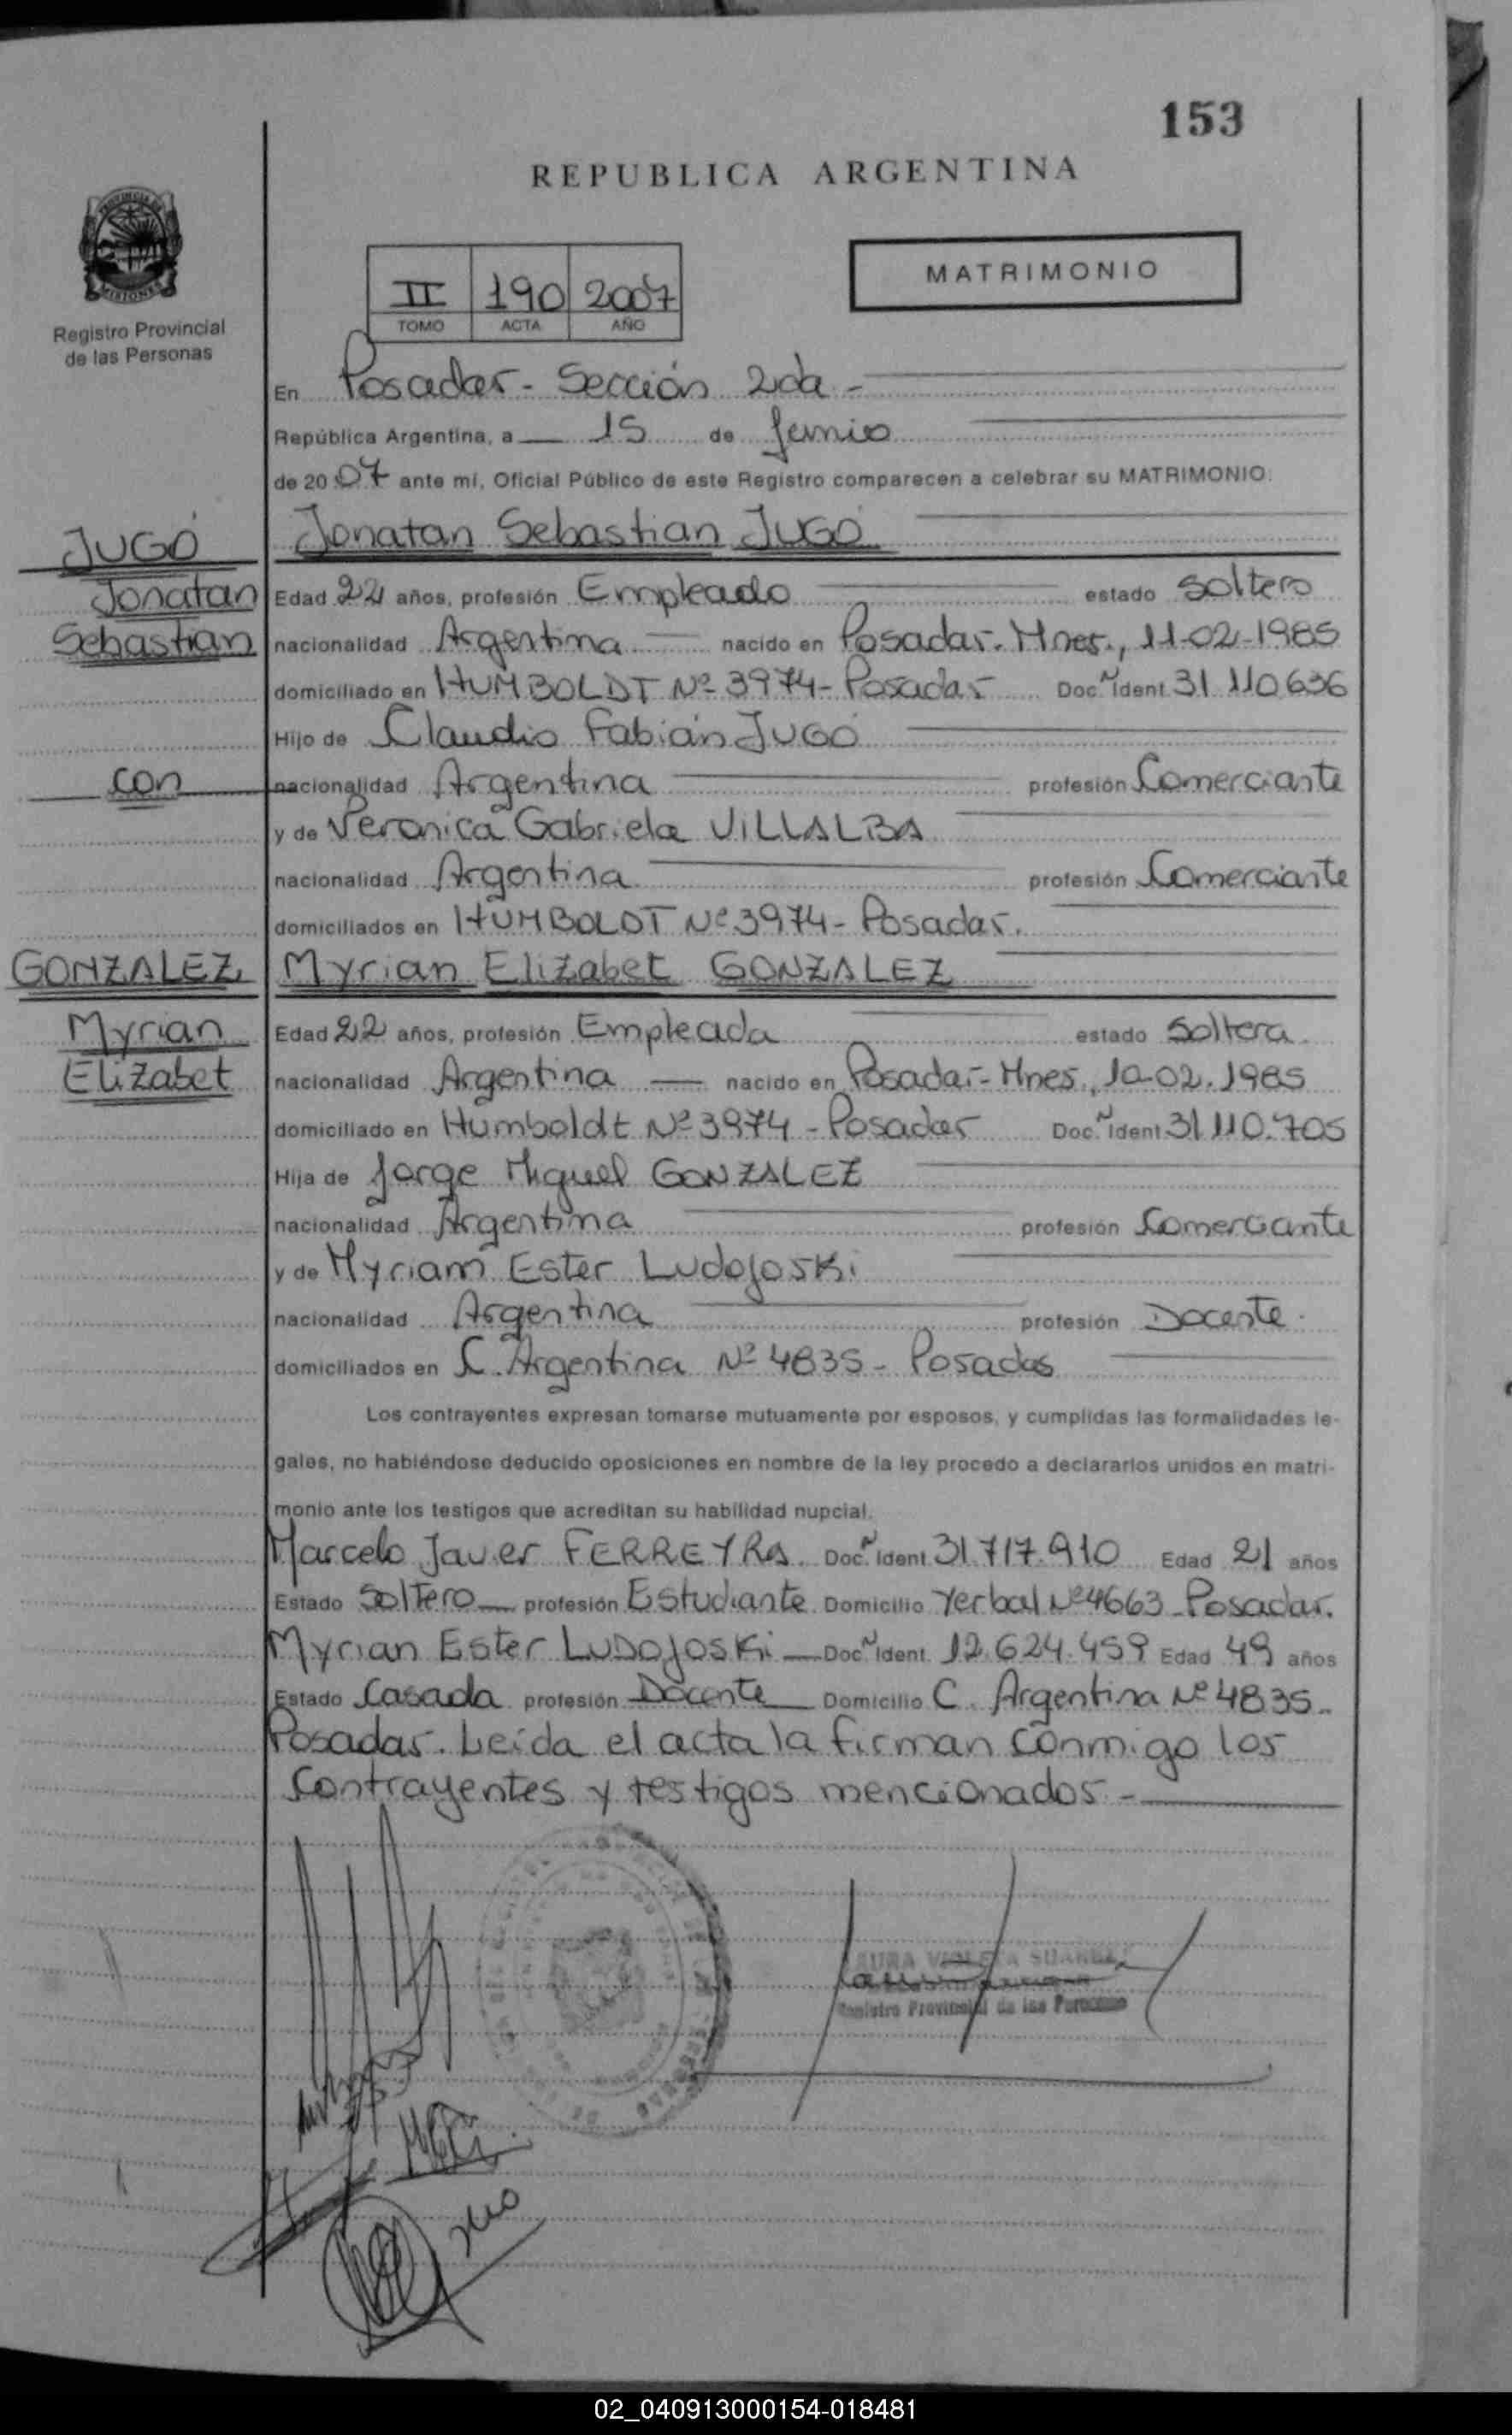 153
REPUBLICA ARGENTINA
PROVINCIA DE MISIONES
Registro Provincial
de las Personas
II 190 2007
TOMO ACTA AÑO
MATRIMONIO
En Posadas - Sección 2da -
República Argentina, a 15 de Junio
de 2007 ante mí, Oficial Público de este Registro comparecen a celebrar su MATRIMONIO:
JUGÓ Jonatan Sebastian JUGÓ
Jonatan Edad 22 años, profesión Empleado estado Soltero
Sebastian nacionalidad Argentina nacido en Posadas. Mnes., 11-02-1985
domiciliado en HUMBOLDT Nº 3974 - Posadas Doc. Nº Ident. 31.110.636
Hijo de Claudio Fabián JUGÓ
con nacionalidad Argentina profesión Comerciante
y de Veronica Gabriela VILLALBA
nacionalidad Argentina profesión Comerciante
domiciliados en HUMBOLDT Nº 3974 - Posadas.
GONZALEZ Myrian Elizabet GONZALEZ
Myrian Edad 22 años, profesión Empleada estado Soltera
Elizabet nacionalidad Argentina nacido en Posadas - Mnes, 10-02.1985
domiciliado en Humboldt Nº 3974 - Posadas Doc. Nº Ident. 31.110.705
Hija de Jorge Miguel GONZALEZ
nacionalidad Argentina profesión Comerciante
y de Myriam Ester Ludojoski
nacionalidad Argentina profesión Docente.
domiciliados en C. Argentina Nº 4835 - Posadas
Los contrayentes expresan tomarse mutuamente por esposos, y cumplidas las formalidades le-
gales, no habiéndose deducido oposiciones en nombre de la ley procedo a declararlos unidos en matri-
monio ante los testigos que acreditan su habilidad nupcial.
Marcelo Javier FERREYRA. Doc. Nº Ident. 31.717.910 Edad 21 años
Estado Soltero profesión Estudiante Domicilio Yerbal Nº 4663 - Posadas.
Myrian Ester LUDOJOSKi Doc. Nº Ident. 12.624.459 Edad 49 años
Estado Casada profesión Docente Domicilio C. Argentina Nº 4835 -
Posadas. Leída el acta la firman conmigo los
contrayentes y testigos mencionados -
LAURA VIOLETA SUAREZ
Registro Provincial de las Personas
02_040913000154-018481